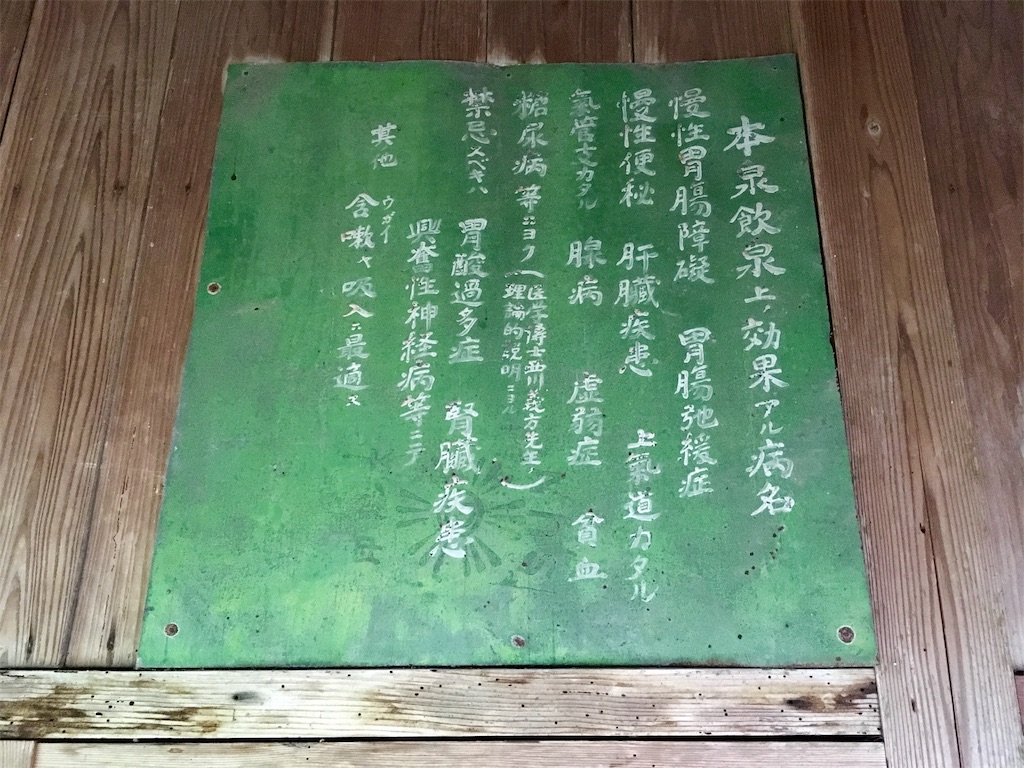 本泉飲泉上ノ効果アル病名
慢性胃腸障礙 胃腸弛緩症
慢性便秘 肝臓疾患 上氣道カタル
氣管支カタル 腺病 虚弱症 貧血
糖尿病等ニヨク(医学博士西川義方先生ノ
理論的説明ニヨル)
禁忌スベキハ 胃酸過多症 腎臓疾患
興奮性神経病等ニテ
其他 含嗽ヤ吸入ニ最適ス
ウガイ